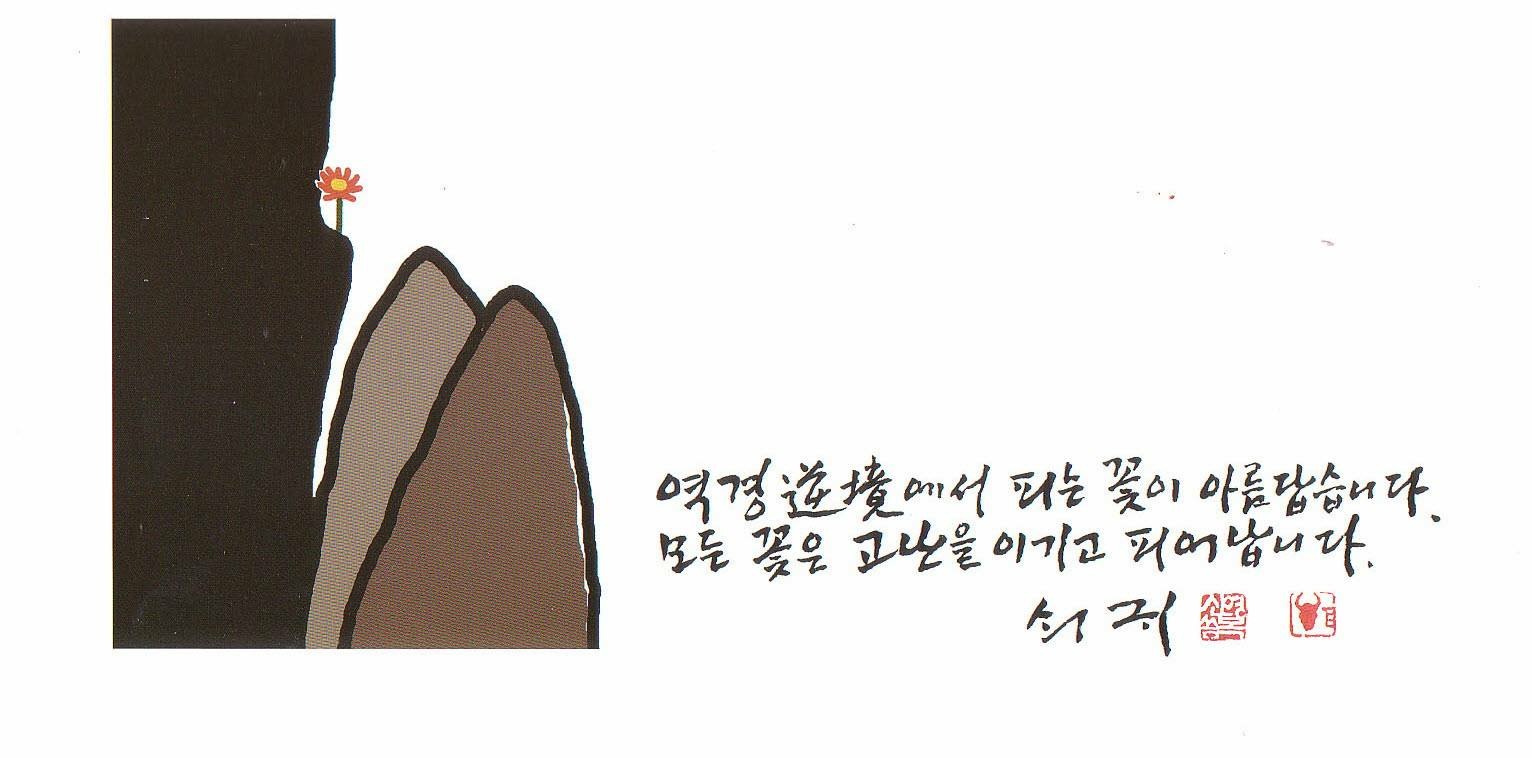 역경逆境에서 피는 꽃이 아름답습니다.
모든 꽃은 고난을 이기고 피어납니다.
쇠귀